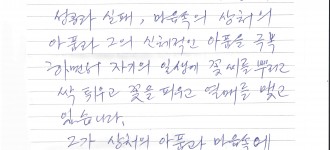 성공과 실패, 마음속의 상처의
아픔과 그의 신체적인 아픔을 극복
하면서 자기의 일생에 꽃씨를 뿌리고
싹 틔우고 꽃을 피우고 열매를 맺고
있습니다.
그가 상처의 아픔과 마음속에